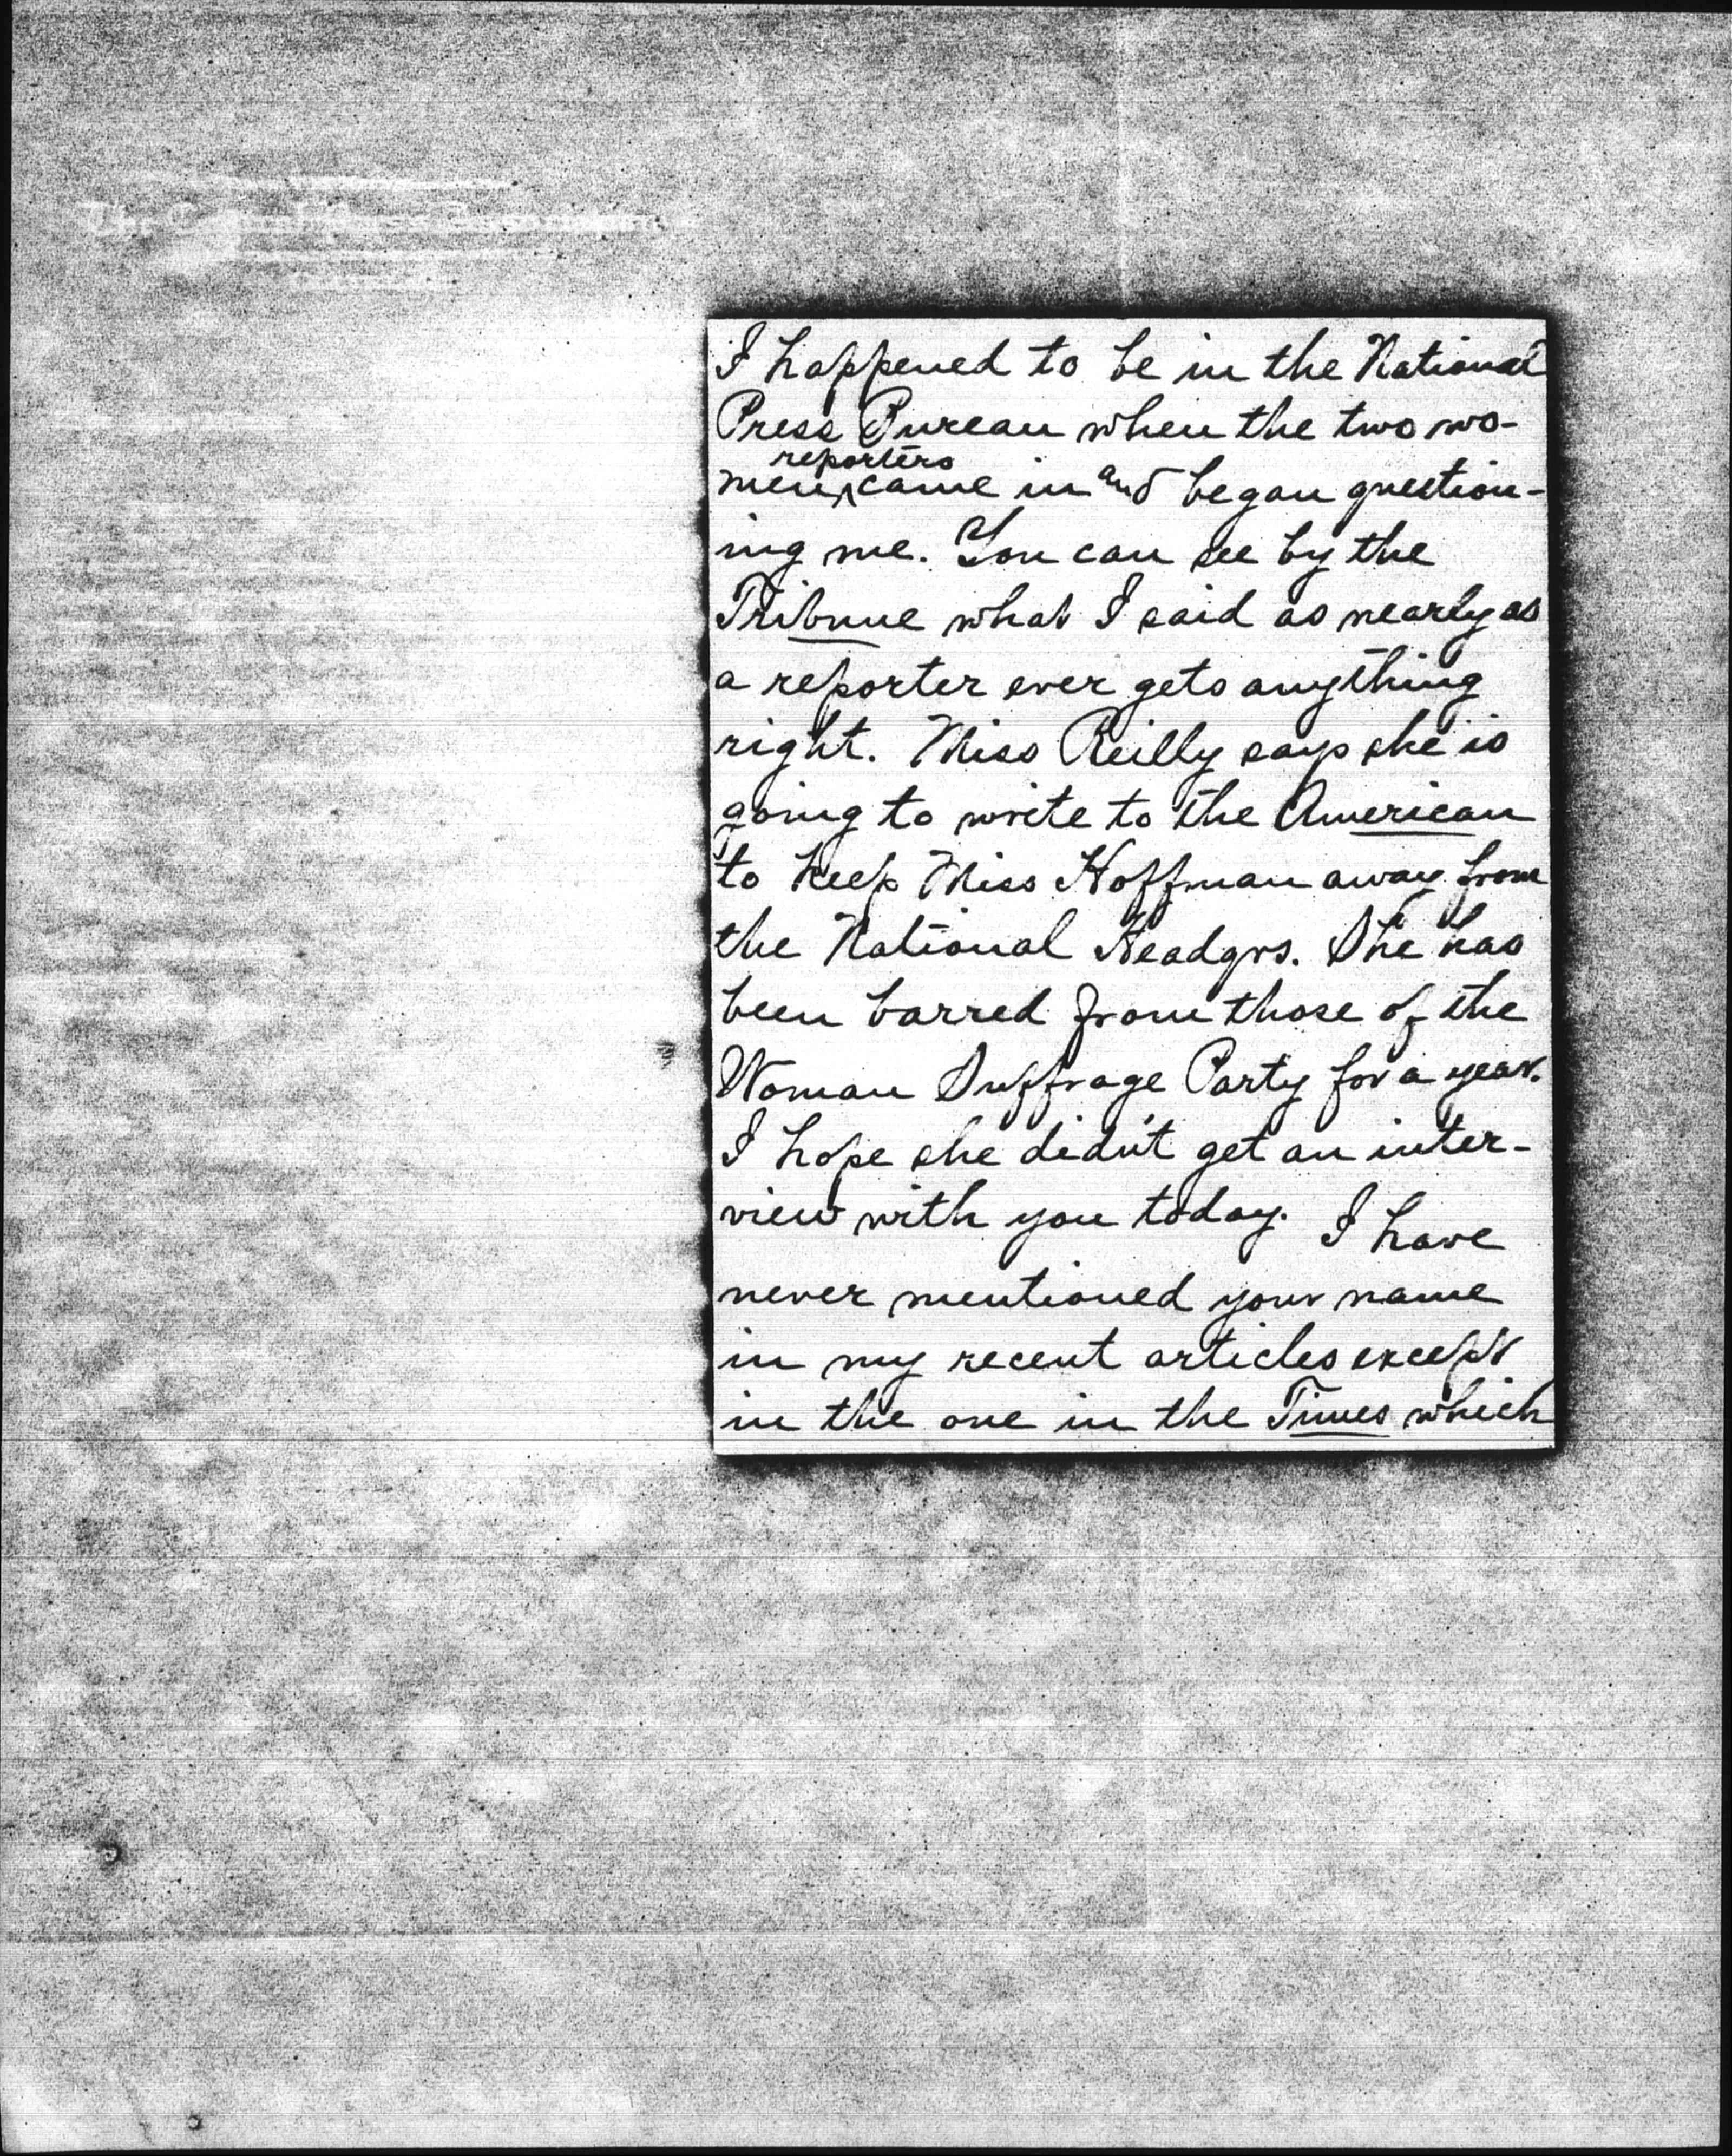 I happened to be in the National
Press Bureau when the two wo-
reporters
men ^ came in and began question-
ing me. You can see by the
Tribune what I said as nearly as
a reporter ever gets anything
right. Miss Reilly says she is
going to write to the American
to keep Miss Hoffman away from
the National Headqrs. She has
been barred from those of the
Woman Suffrage Party for a year.
I hope she didn't get an inter-
view with you today. I have
never mentioned your name
in my recent articles except
in the one in the Times which